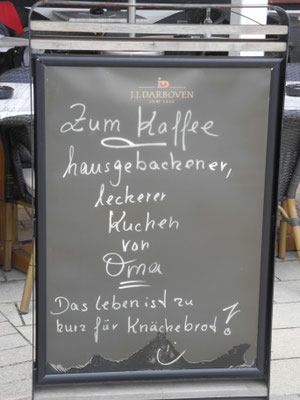 J.J.DARBOVEN
SEIT 1866
Zum Kaffee
hausgebackener,
leckerer
Kuchen
von
Oma
Das Leben ist zu
kurz für Knächebrot!